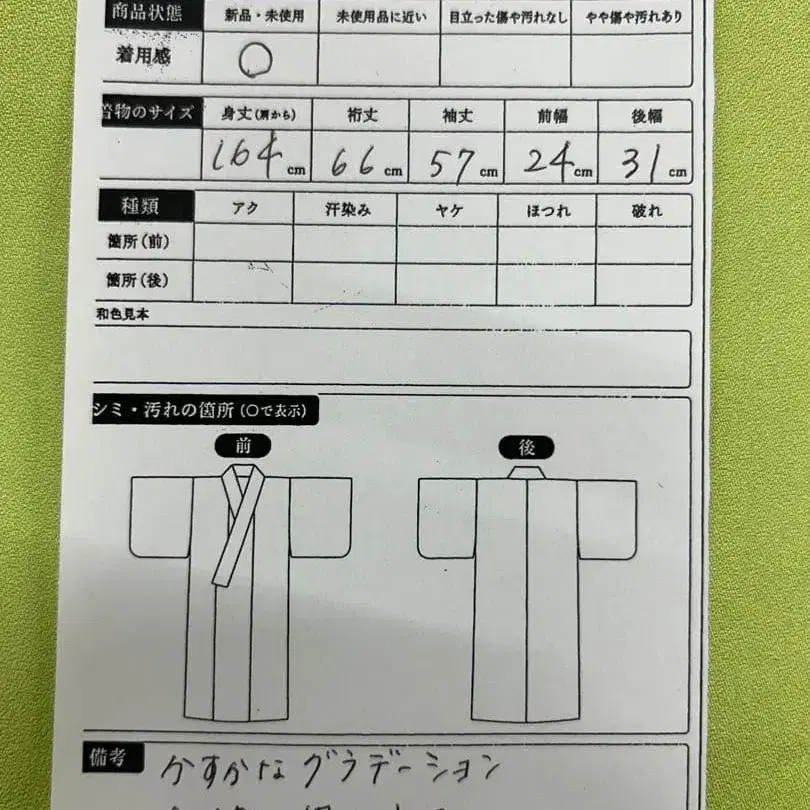 商品状態 新品・未使用 未使用品に近い 目立った傷や汚れなし やや傷や汚れあり
着用感 ○
着物のサイズ 身丈(肩から) 裄丈 袖丈 前幅 後幅
164cm 66cm 57cm 24cm 31cm
種類 アク 汗染み ヤケ ほつれ 破れ
箇所(前)
箇所(後)
和色見本
シミ・汚れの箇所(○で表示)
前 後
備考 かすかなグラデーション